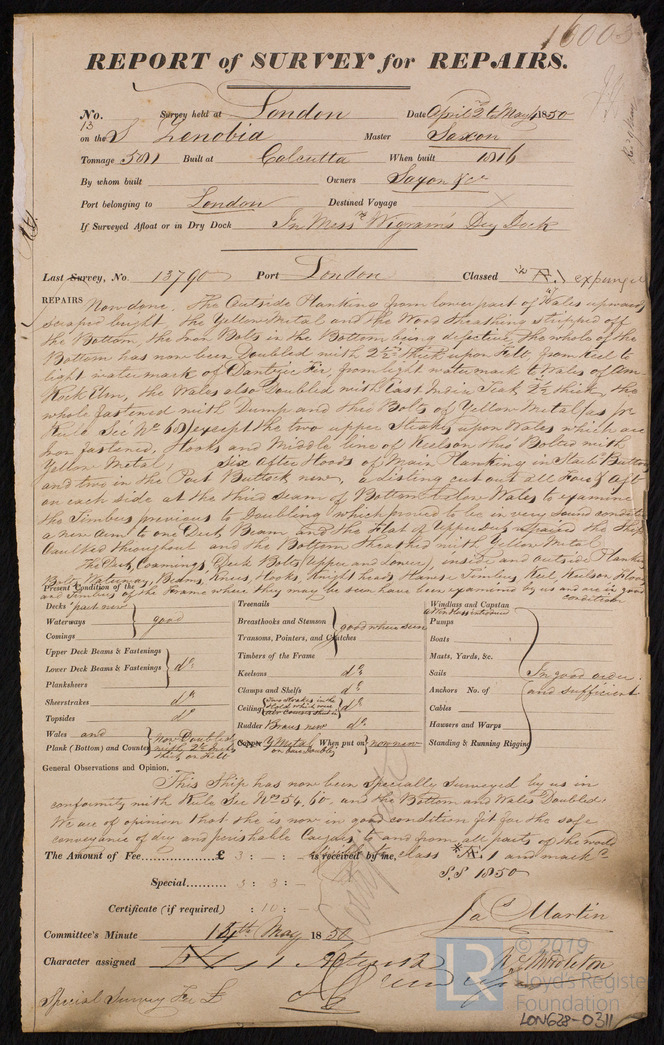 16003
REPORT of SURVEY for REPAIRS.
No. 13 Survey held at London Date April 2 to May 4 1850
on the S Zenobia Master Saxon
Tonnage 581 Built at Calcutta When built 1816
By whom built Owners Saxon & Co
Port belonging to London Destined Voyage
If Surveyed Afloat or in Dry Dock In Messrs Wigram's Dry Dock
Last Survey, No 13790 Port London Classed Æ.1 expunged
REPAIRS Now done. The Outside Planking from lower part of Wales upwards
scraped bright. The Yellow Metal and the Wood Sheathing stripped off
the Bottom, the Iron Bolts in the Bottom being defective, The whole of the
Bottom has now been Doubled with 2½ thick upon Felt, from Keel to
light watermark of Dantzic Fir, from light watermark to Wales of Am
Rock Elm, the Wales also Doubled with East India Teak 2½ thick, the
whole fastened with Dump and thro' Bolts of Yellow Metal (as pr
Rule Sec No 60) except the two upper Strakes upon Wales which are
Iron fastened, Hooks and Middle line of Keelson thro' Bolted with
Yellow Metal, Six After Hoods of Main Planking in Starbd Buttock
and two in the Port Buttock new, a listing cut out all Fore & Aft
on each side at the third seam of Bottom below Wales to examine
the Timbers previous to Doubling which proved to be in very sound condition
a new Arm to one Deck Beam, and the Flat of Upper Deck the Ship
Caulked throughout and the Bottom Sheathed with Yellow Metal
The Deck, Coamings, Deck Bolts (Upper and Lower), inside and outside Planking
Bolts, Waterway, Beams, Knees, Hooks, Knightheads Hawse Timbers Keel, Keelson Floors
and Timbers of the Frame where they may be seen have been examined by us and are in good
condition
Present Condition of the
Decks part new
Waterways good
Comings
Upper Deck Beams & Fastenings
Lower Deck Beams & Fastenings do
Planksheers
Sheerstrakes do
Topsides do
Wales and
Plank (Bottom) and Counter Now Doubled with 2½ inch thick on Felt
Treenails
Breasthooks and Stemson good where seen
Transoms, Pointers, and Crutches
Timbers of the Frame
Keelsons do
Clamps and Shelfs do
Ceiling two Strakes in the Hold which were do
Rudder Braces new do
Copper Y Metal When put on now new
on Doubling
Windlass and Capstan
Pumps
Boats
Masts, Yards, &c.
Sails In good order
Anchors No. of and sufficient
Cables
Hawsers and Warps
Standing & Running Rigging
General Observations and Opinion,
This Ship has now been Specially Surveyed by us in
conformity with Rule Sec Nos 54, 60. and the Bottom and Wales Doubled
We are of opinion that she is now in good condition fit for the safe
conveyance of dry and perishable Cargoes to and from all parts of the world
The Amount of Fee.............. £ 3 : - : - is received by me, class *Æ.1 and mark
S.S 1850
Special....... 3 : 3 : -
Certificate (if required) : 10 : -
Jas Martin
Committee's Minute 14th May 1850
Character assigned
Special Survey Fee £
© 2019
LR
Lloyd's Register
Foundation
LON628-0311